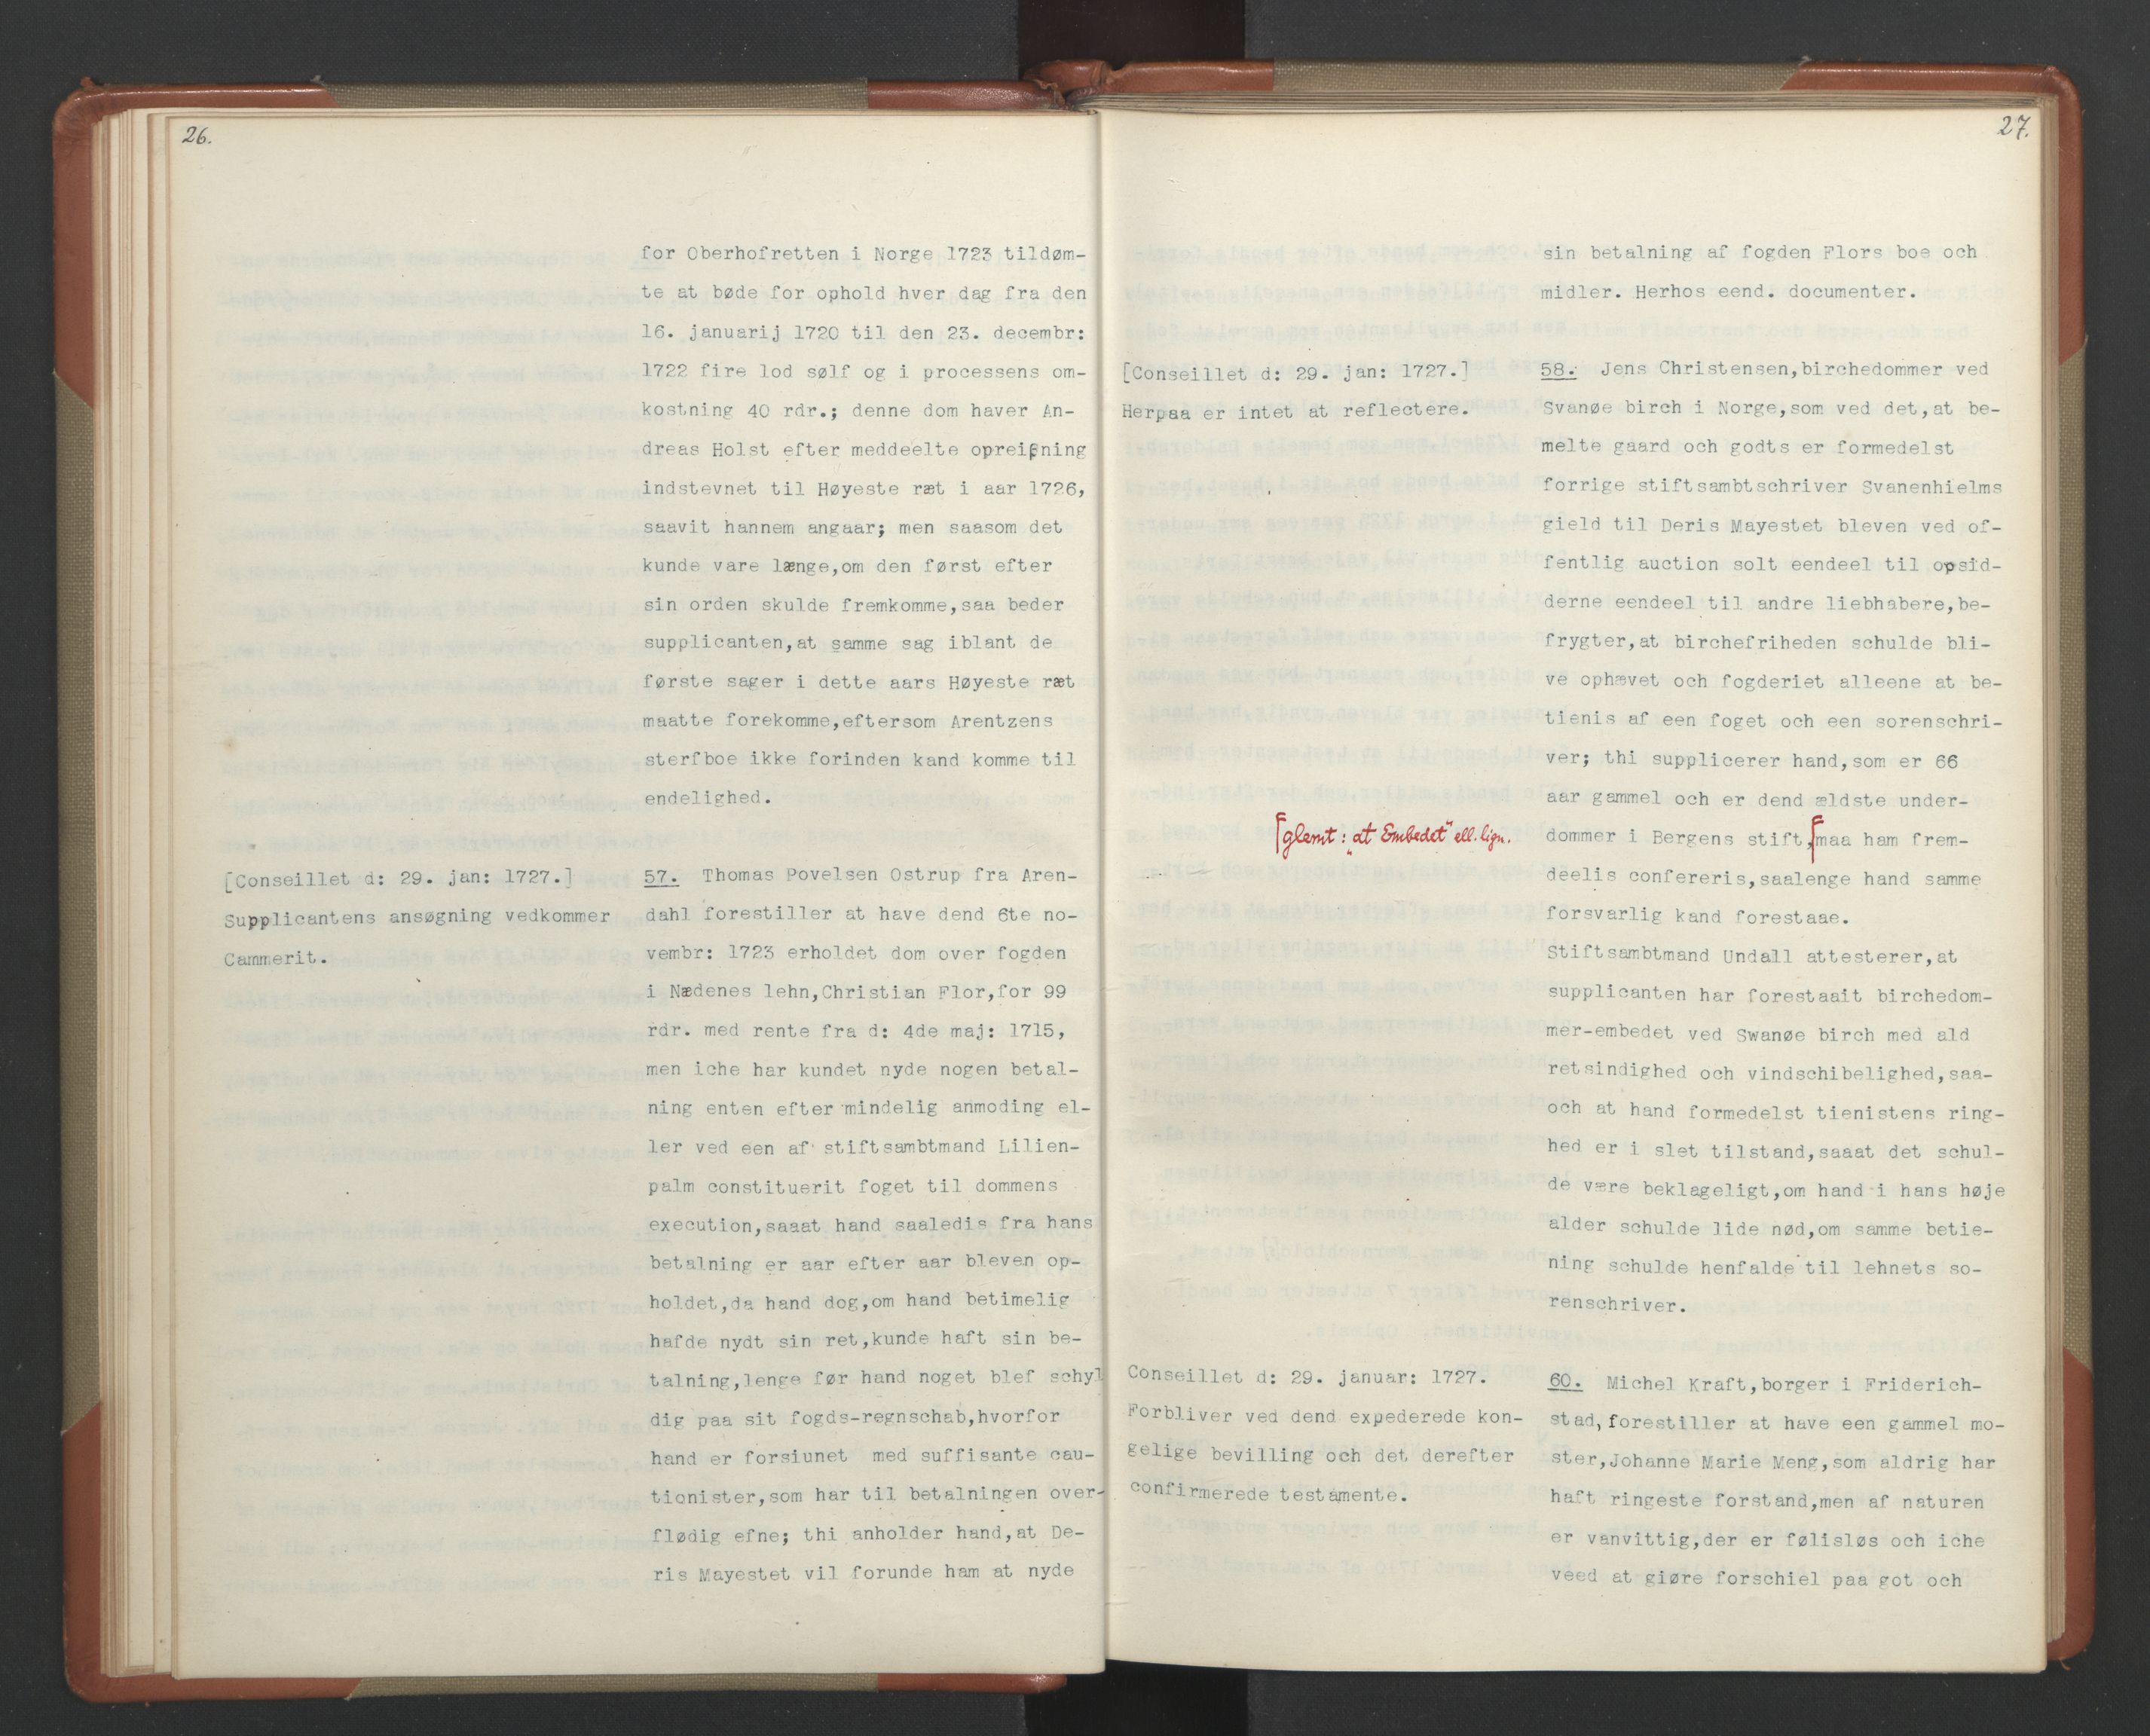 26.
for Oberhofretten i Norge 1723 tildøm-
te at bøde for ophold hver dag fra den
16. januarij 1720 til den 23. decembr:
1722 fire lod sølf og i processens om-
kostning 40 rdr.; denne dom haver An-
dreas Holst efter meddeelte opreißning
indstevnet til Høyeste ræt i aar 1726,
saavit hannem angaar; men saasom det
kunde vare længe,om den først efter
sin orden skulde fremkomme,saa beder
supplicanten,at samme sag iblant de
første sager i dette aars Høyeste ræt
maatte forekomme,eftersom Arentzens
sterfboe ikke forinden kand komme til
endelighed.
[Conseillet d: 29. jan: 1727.]
Supplicantens ansøgning vedkommer
Cammerit.
57. Thomas Povelsen Ostrup fra Aren-
dahl forestiller at have dend 6te no-
vembr: 1723 erholdet dom over fogden
i Nædenes lehn,Christian Flor,for 99
rdr. med rente fra d: 4de maj: 1715,
men iche har kundet nyde nogen betal-
ning enten efter mindelig anmoding el-
ler ved een af stiftsambtmand Lilien-
palm constituerit foget til dommens
execution,saaat hand saaledis fra hans
betalning er aar efter aar bleven op-
holdet,da hand dog,om hand betimelig
hafde nydt sin ret,kunde haft sin be-
talning,lenge før hand noget blef schyl
dig paa sit fogds-regnschab,hvorfor
hand er forsiunet med suffisante cau-
tionister,som har til betalningen over-
flødig efne; thi anholder hand,at De-
ris Mayestet vil forunde ham at nyde
27.
sin betalning af fogden Flors boe och
midler. Herhos eend. documenter.
[Conseillet d: 29. jan: 1727.]
Herpaa er intet at reflectere.
58. Jens Christensen,birchedommer ved
Svanøe birch i Norge,som ved det,at be-
melte gaard och godts er formedelst
forrige stiftsambtschriver Svanenhielms
gield til Deris Mayestet bleven ved of-
fentlig auction solt eendeel til opsid-
derne eendeel til andre liebhabere,be-
frygter,at birchefriheden schulde bli-
ve ophævet och fogderiet alleene at be-
tienis af een foget och een sorenschri-
ver; thi supplicerer hand,som er 66
aar gammel och er dend ældste under-
dommer i Bergens stift,⌈maa ham frem-
⌈glemt: "at Embedet" ell. lign.
deelis confereris,saalenge hand samme
forsvarlig kand forestaae.
Stiftsambtmand Undall attesterer,at
supplicanten har forestaait birchedom-
mer-embedet ved Swanøe birch med ald
retsindighed och vindschibelighed,saa-
och at hand formedelst tienistens ring-
hed er i slet tilstand,saaat det schul-
de være beklageligt,om hand i hans høje
alder schulde lide nød,om samme betie-
ning schulde henfalde til lehnets so-
renschriver.
Conseillet d: 29. januar: 1727.
Forbliver ved dend expederede kon-
gelige bevilling och det derefter
confirmerede testamente.
60. Michel Kraft,borger i Friderich-
stad,forestiller at have een gammel mo-
ster,Johanne Marie Meng,som aldrig har
haft ringeste forstand,men af naturen
er vanvittig,der er følisløs och iche
veed at giøre forschiel paa got och